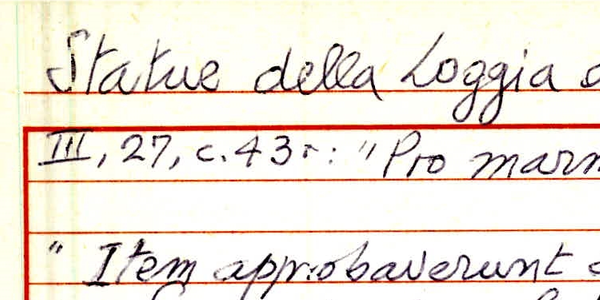 Statue della Loggia
III, 27, c. 43r: "Pro
" Item approbaverunt